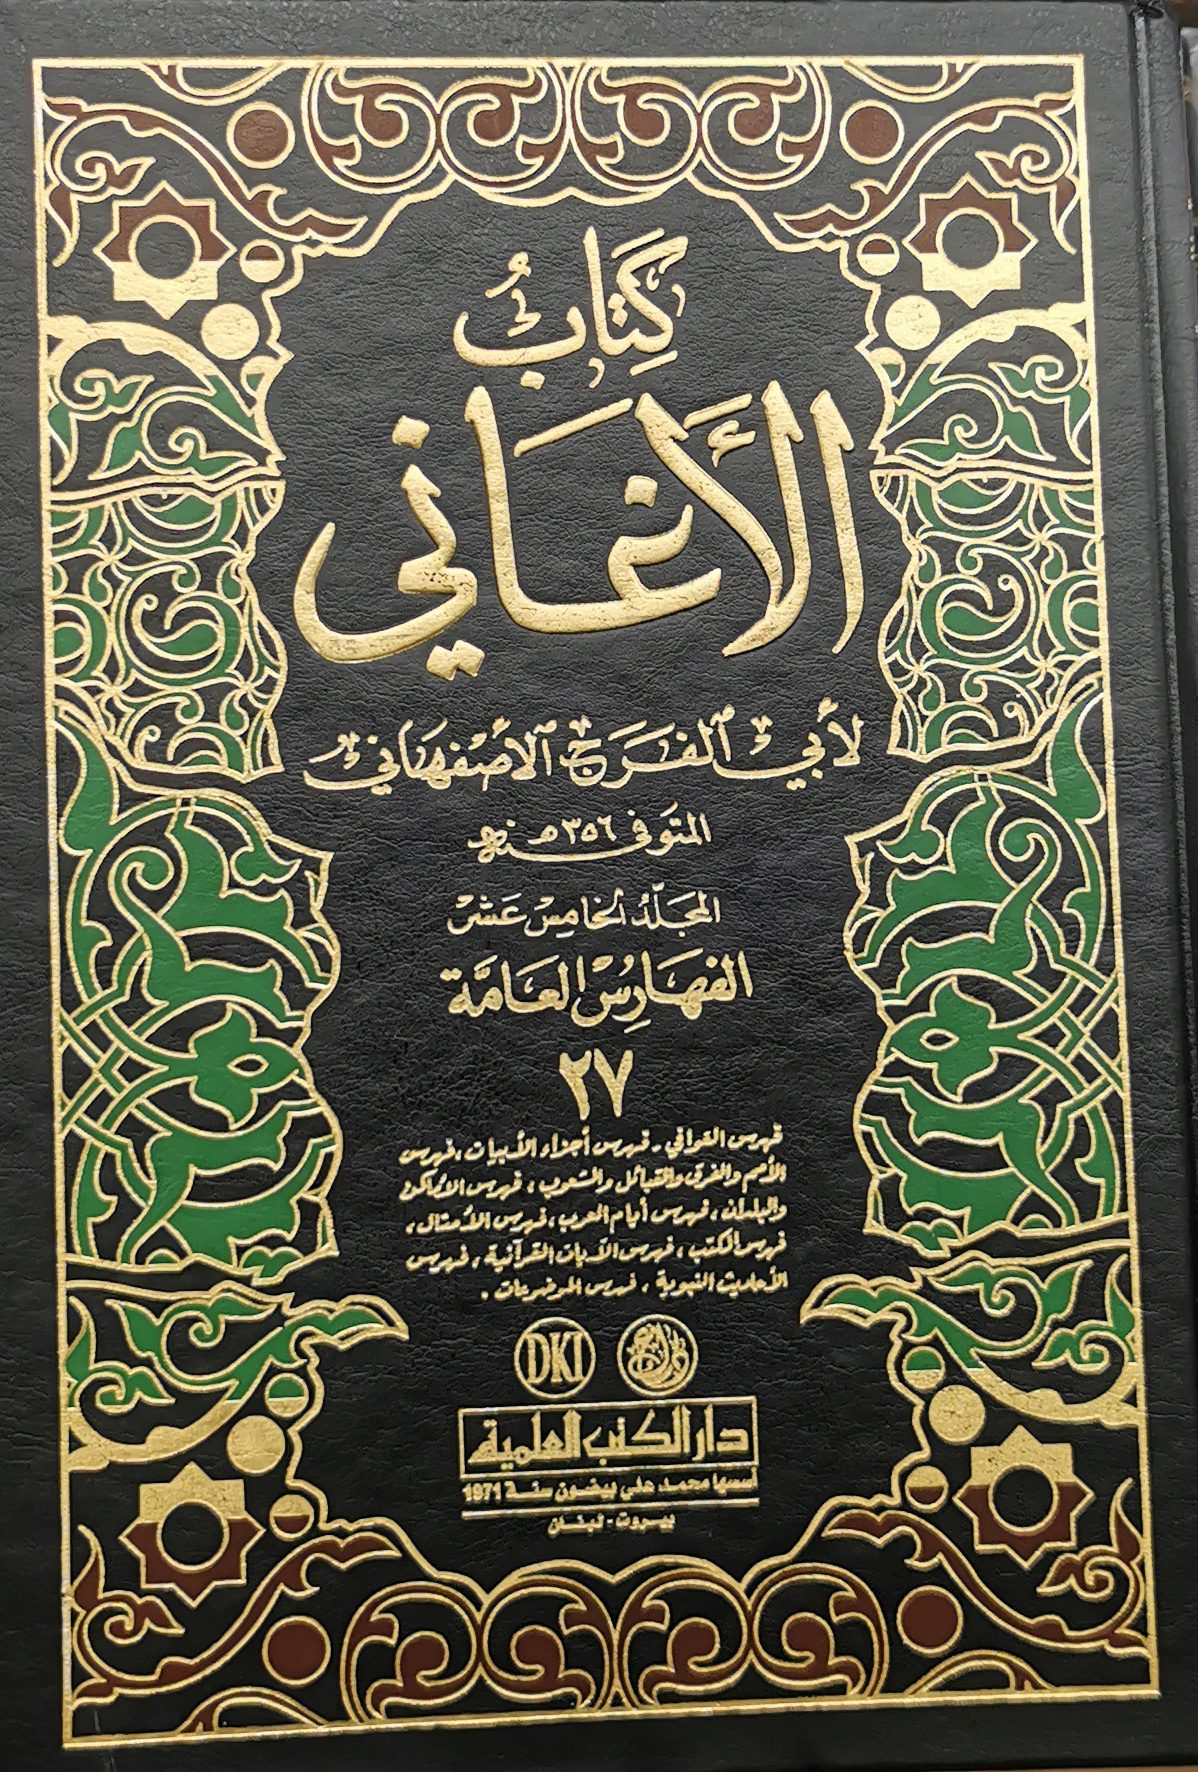 كِتَابُ
الأَغَانِي
لأَبي الفَرَج الأصْفهَاني
المتوفى سنة ٣٥٦ هـ
المجَلّدُ الخامِسْ عَشَرْ
الفهَارِسُ العَامَّة
٢٧
فهرس القوافي ، فهرس أجزاء الأبيات ، فهرس
الأمم والفرق والقبائل والشعوب ، فهرس الأماكن
والبلدان ، فهرس أيام العرب ، فهرس الأمثال ،
فهرس الكتب ، فهرس الآيات القرآنية ، فهرس
الأحاديث النبوية ، فهرس الموضوعات .
DKI
دار الكتب العلمية
أسسها محمد علي بيضون سنة 1971
بيروت - لبنان